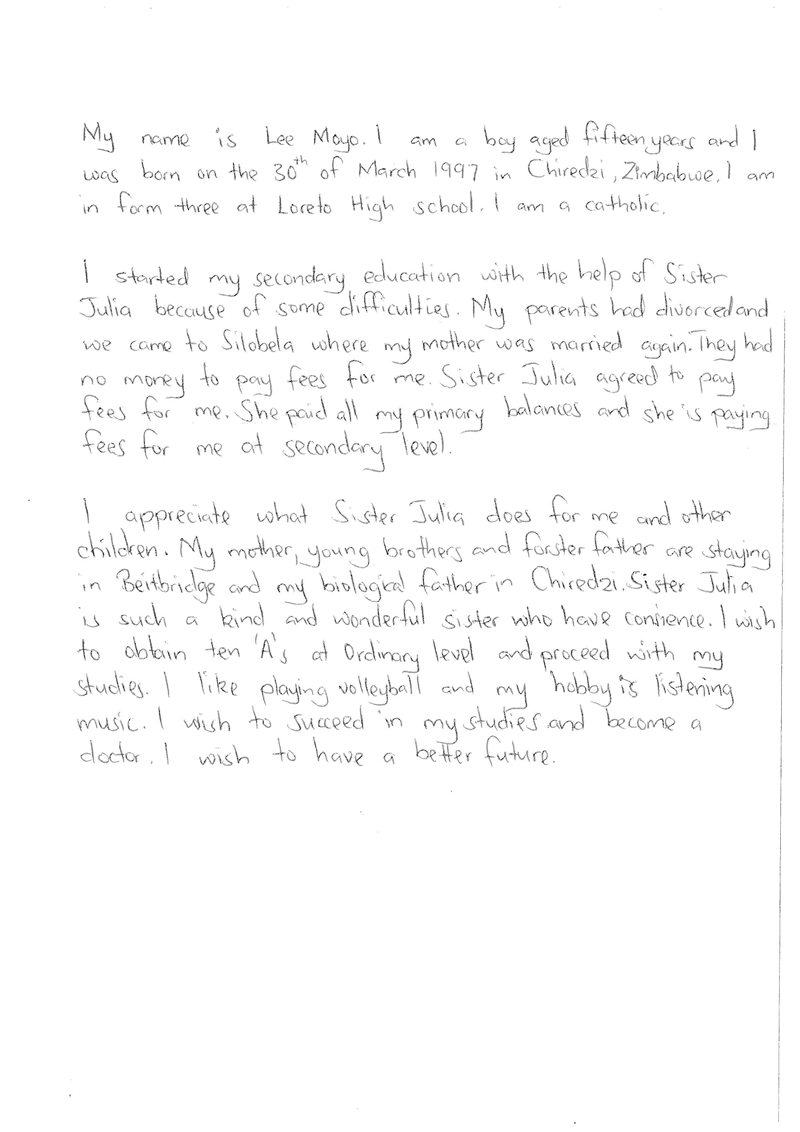 My name is Lee Moyo. I am a boy aged fifteen years and I
was born on the 30th of March 1997 in Chiredzi, Zimbabwe. I am
in form three at Loreto High school. I am a catholic.
I started my secondary education with the help of Sister
Julia because of some difficulties. My parents had divorced and
we came to Silobela where my mother was married again. They had
no money to pay fees for me. Sister Julia agreed to pay
fees for me. She paid all my primary balances and she is paying
fees for me at secondary level.
I appreciate what Sister Julia does for me and other
children. My mother, young brothers and forster father are staying
in Beitbridge and my biological father in Chiredzi. Sister Julia
is such a kind and wonderful sister who have . I wish
to obtain ten 'A's at Ordinary level and proceed with my
studies. I like playing volleyball and my hobby is listening
music. I wish to succeed in my studies and become a
doctor. I wish to have a better future.